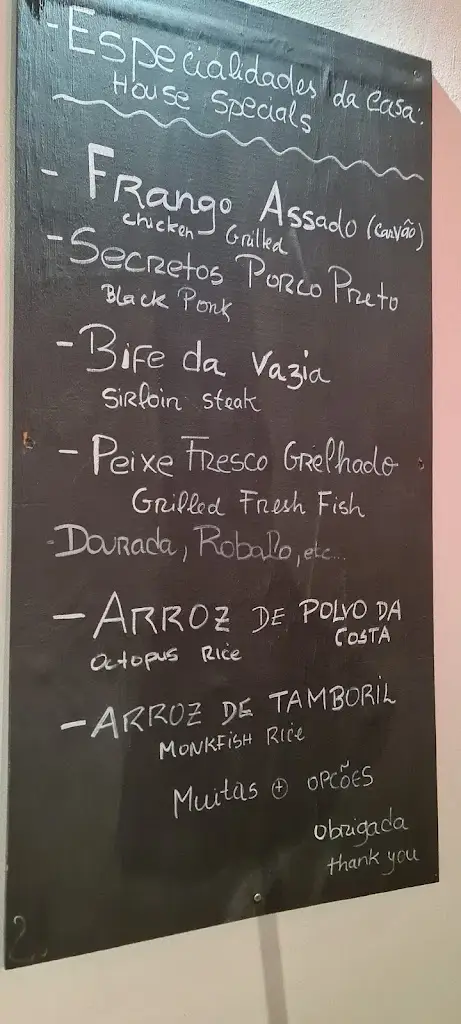 - Especialidades da Casa:
House Specials
- Frango Assado (carvão)
chicken Grilled
- Secretos Porco Preto
Black Pork
- Bife da Vazia
Sirloin steak
- Peixe Fresco Grelhado
Grilled Fresh Fish
- Dourada, Robalo, etc...
- ARROZ DE POLVO DA
COSTA
Octopus Rice
- ARROZ DE TAMBORIL
MONKFISH Rice
Muitas + OPÇÕES
obrigada
thank you
2.